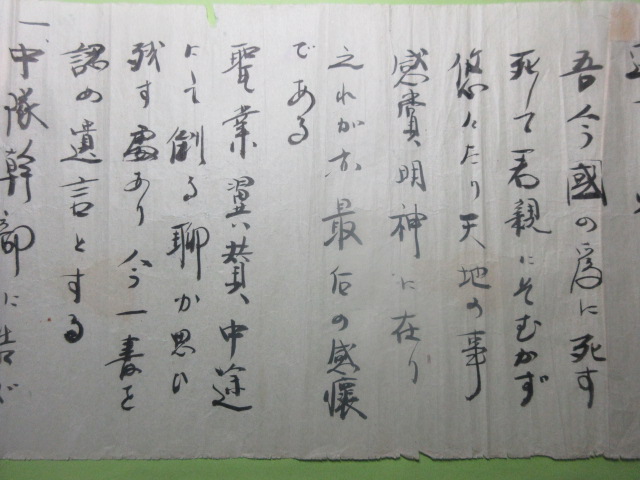 吾今國の為に死す
死して君親にそむかず
悠々たり天地の事
感賞明神に在り
之れが最后の感懐
である
聖業翼賛中途
にて倒る聊か思ひ
残す處あり今一書を
認め遺言とする
一、中隊幹部に告ぐ